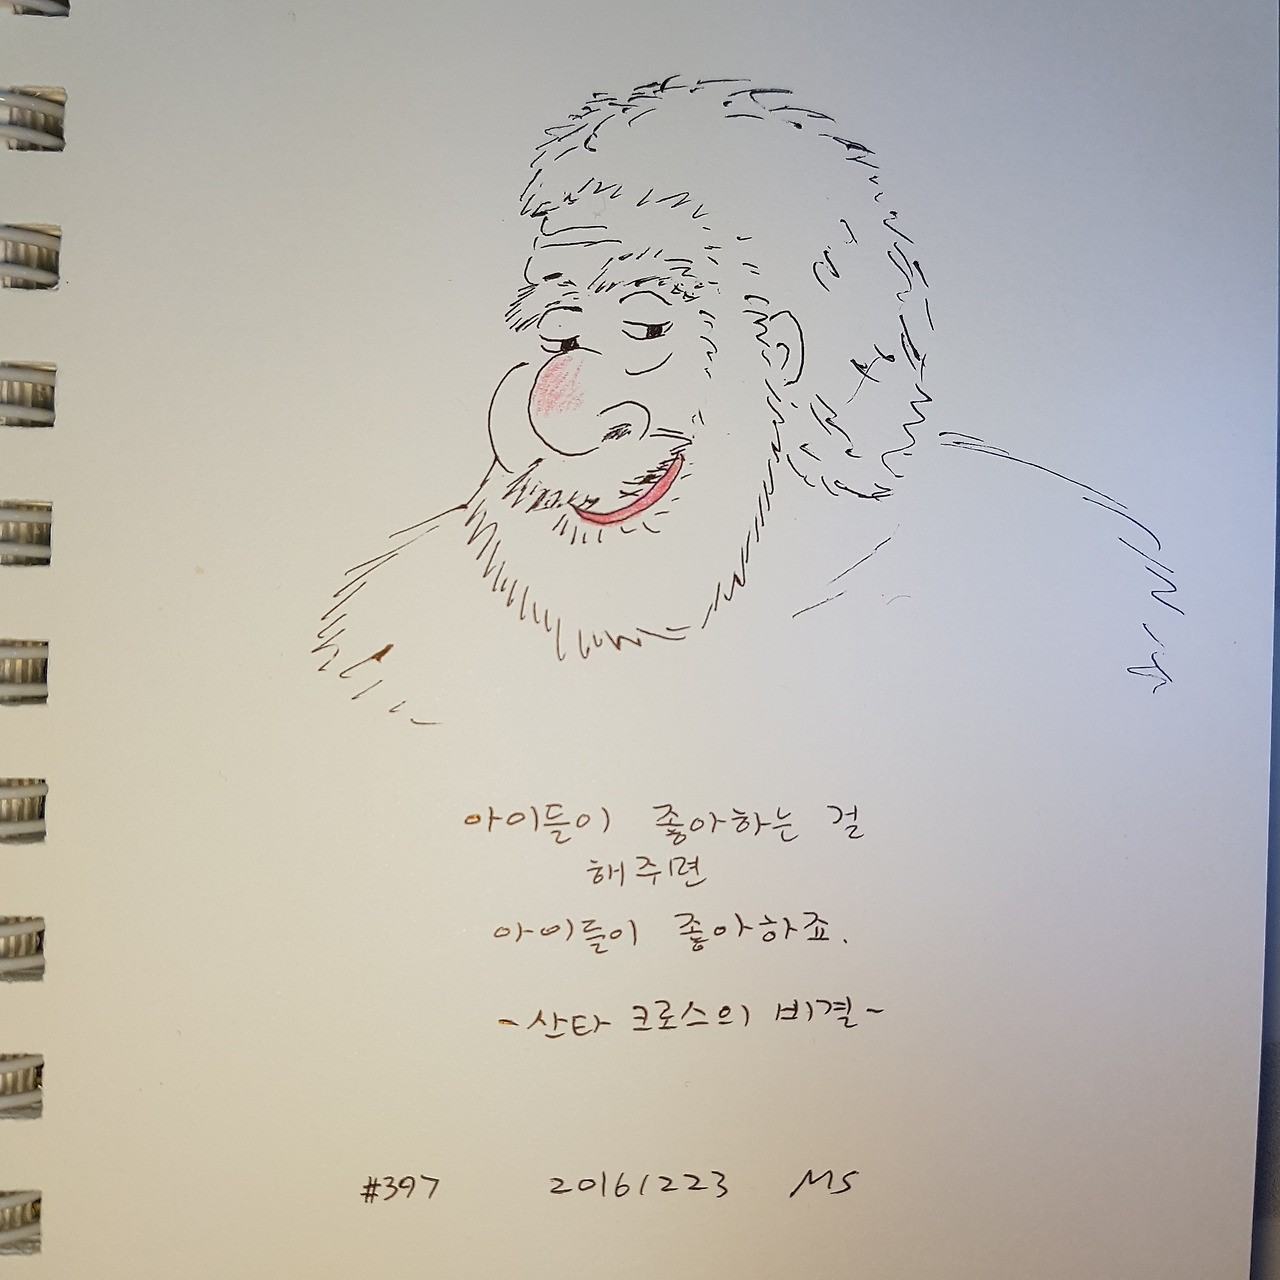 아이들이 좋아하는 걸
해주면
아이들이 좋아하죠.
-산타 크로스의 비결-
#397 20161223 MS